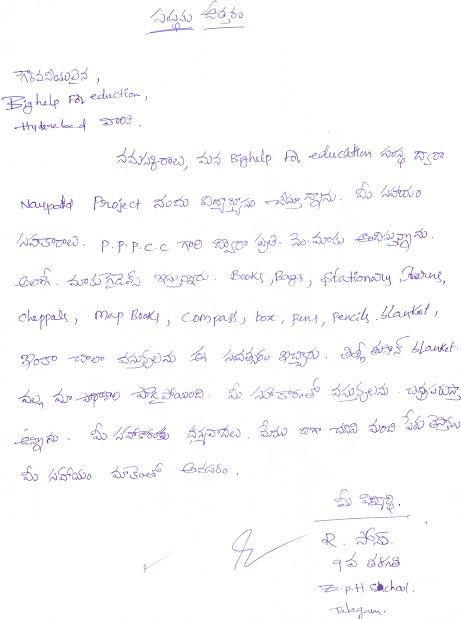 సంస్థకు ఉత్తరం
గౌరవనీయులైన,
Big help For eduction,
Hyderabad వారికి.
నమస్కారాలు, మన Bighelp For education సంస్థ ద్వారా
Naupada Project నందు విద్యాభ్యాసం చేస్తున్నాను. మీ సహాయం
సహకారాలు. P.P.P.C.C గారి ద్వారా ప్రతి
అలాగే. మాకు ఇస్తున్నారు. Books, Bags, Stationary,
cheppals, Map Books, Compass, box, pens, pencils. blanket,
ఇంకా చాలా వస్తువులను ఈ సంవత్సరం ఇచ్చారు. తుఫాన్ blanket.
వల్ల మా పాడైపోయింది. మీ సహకారంతో వస్తువులను
ఉన్నాను. మీ సహకారంకు ధన్యవాదలు. మేము బాగా చదివి మంచి పేరు
మీ సహాయం మాకెంతో అవసరం.
మీ విద్యార్థి.
R. సోను.
9వ తరగతి
Z.P.H. School.